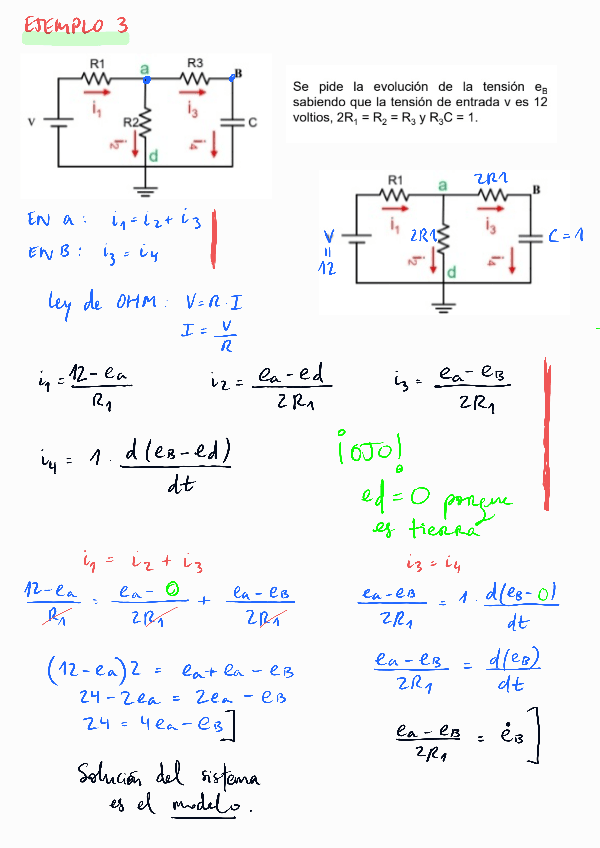 EJEMPLO 3
R1 a R3 B
V i1 R2 i3 C
i2 i4
d
Se pide la evolución de la tensión eB
sabiendo que la tensión de entrada v es 12
voltios, 2R1 = R2 = R3 y R3C = 1.
R1 a 2R1 B
V = 12 i1 2R1 i3 C=1
i2 i4
d
EN a: i1 = i2 + i3
EN B: i3 = i4
Ley de OHM: V = R · I
I = V/R
i1 = (12 - ea)/R1 i2 = (ea - ed)/2R1 i3 = (ea - eB)/2R1
i4 = 1 · d(eB - ed)/dt
¡OJO!
ed = 0 porque
es tierra
i1 = i2 + i3
(12 - ea)/R1 = (ea - 0)/2R1 + (ea - eB)/2R1
(12 - ea)2 = ea + ea - eB
24 - 2ea = 2ea - eB
24 = 4ea - eB]
i3 = i4
(ea - eB)/2R1 = 1 · d(eB - 0)/dt
(ea - eB)/2R1 = d(eB)/dt
(ea - eB)/2R1 = ėB]
Solución del sistema
es el modelo.